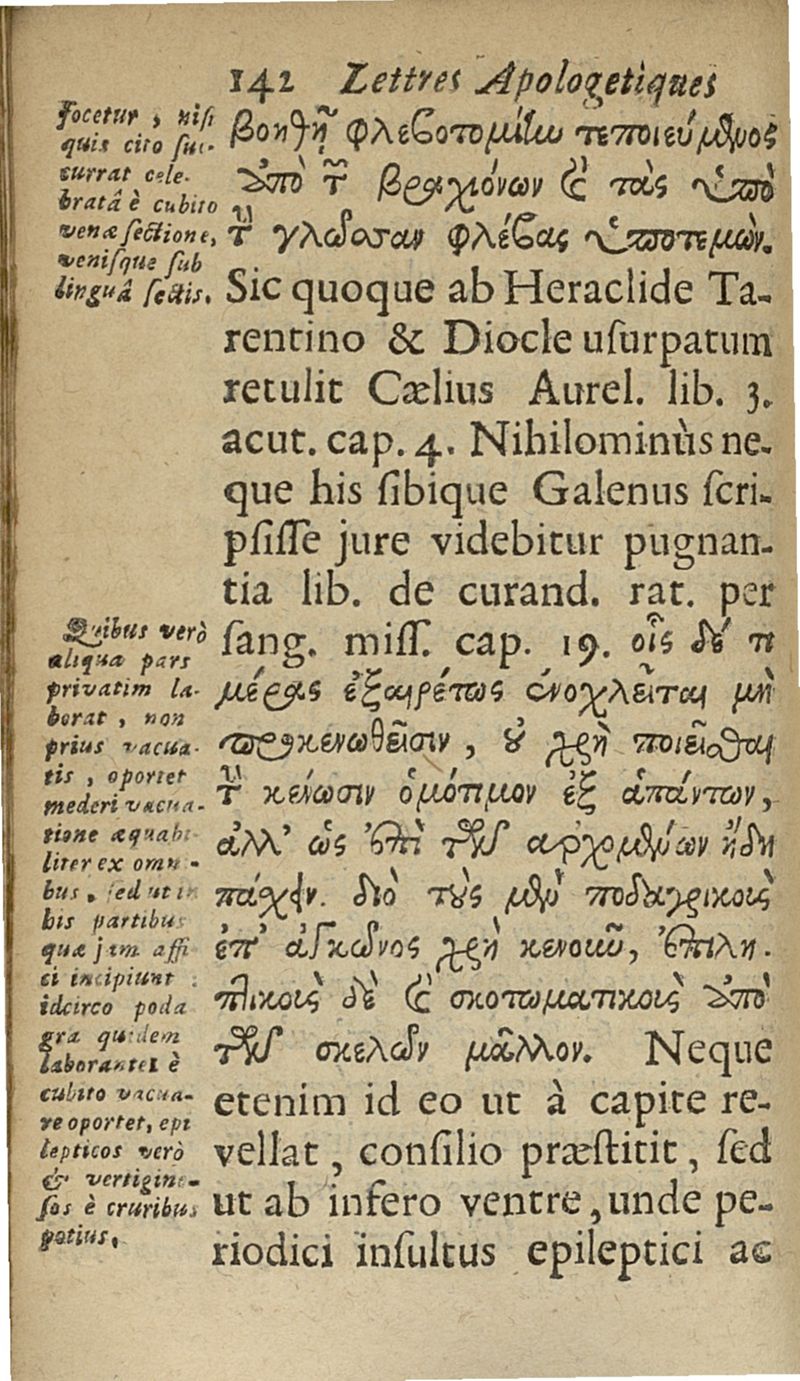 142 Lettres Apologetiques
focetur, nisi
quis cito suc-
currat cele-
bratâ è cubito
venæ sectione,
venisque sub
linguâ sectis.
βοηθῇ φλεβοτομίῃ
ἀπὸ τῶν βραχιόνων καὶ τὰς ὑπὸ
τὴν γλῶσσαν φλέβας ὑποτεμών.
Sic quoque ab Heraclide Ta-
rentino & Diocle uſurpatum
retulit Cælius Aurel. lib. 3.
acut. cap. 4. Nihilominùs ne-
que his ſibique Galenus ſcri-
pſiſſe jure videbitur pugnan-
tia lib. de curand. rat. per
ſang. miſſ. cap. 19. οἷς δέ τι
μέρος ἐξαιρέτως ἐνοχλεῖται μὴ
προκενωθεῖσιν, οὐ χρὴ ποιεῖσθαι
τὴν κένωσιν ὁμότιμον ἐξ ἁπάντων,
ἀλλ’ ὡς ἐπὶ τῶν ἀρχομένων ἤδη
πάσχειν. διὸ τοὺς μὲν ποδαγρικοὺς
ἐπ’ ἀγκῶνος χρὴ κενοῦν, ἐπιλη-
πτικοὺς δὲ καὶ σκοτωματικοὺς ἀπὸ
τῶν σκελῶν μᾶλλον. Neque
etenim id eo ut à capite re-
vellat, conſilio præſtitit, ſed
ut ab infero ventre, unde pe-
riodici inſultus epileptici ac
Quibus verò
aliqua pars
privatim la-
borat, non
prius vacua-
tis, oportet
mederi vacua-
tione æquabi
liter ex omni-
bus, ſed ut in
his partibus
quæ jam affi
ci incipiunt :
idcirco poda
gra quidem
laborantes è
cubito vacua-
re oportet, epi
lepticos verò
& vertigino-
ſos è cruribus
potius.